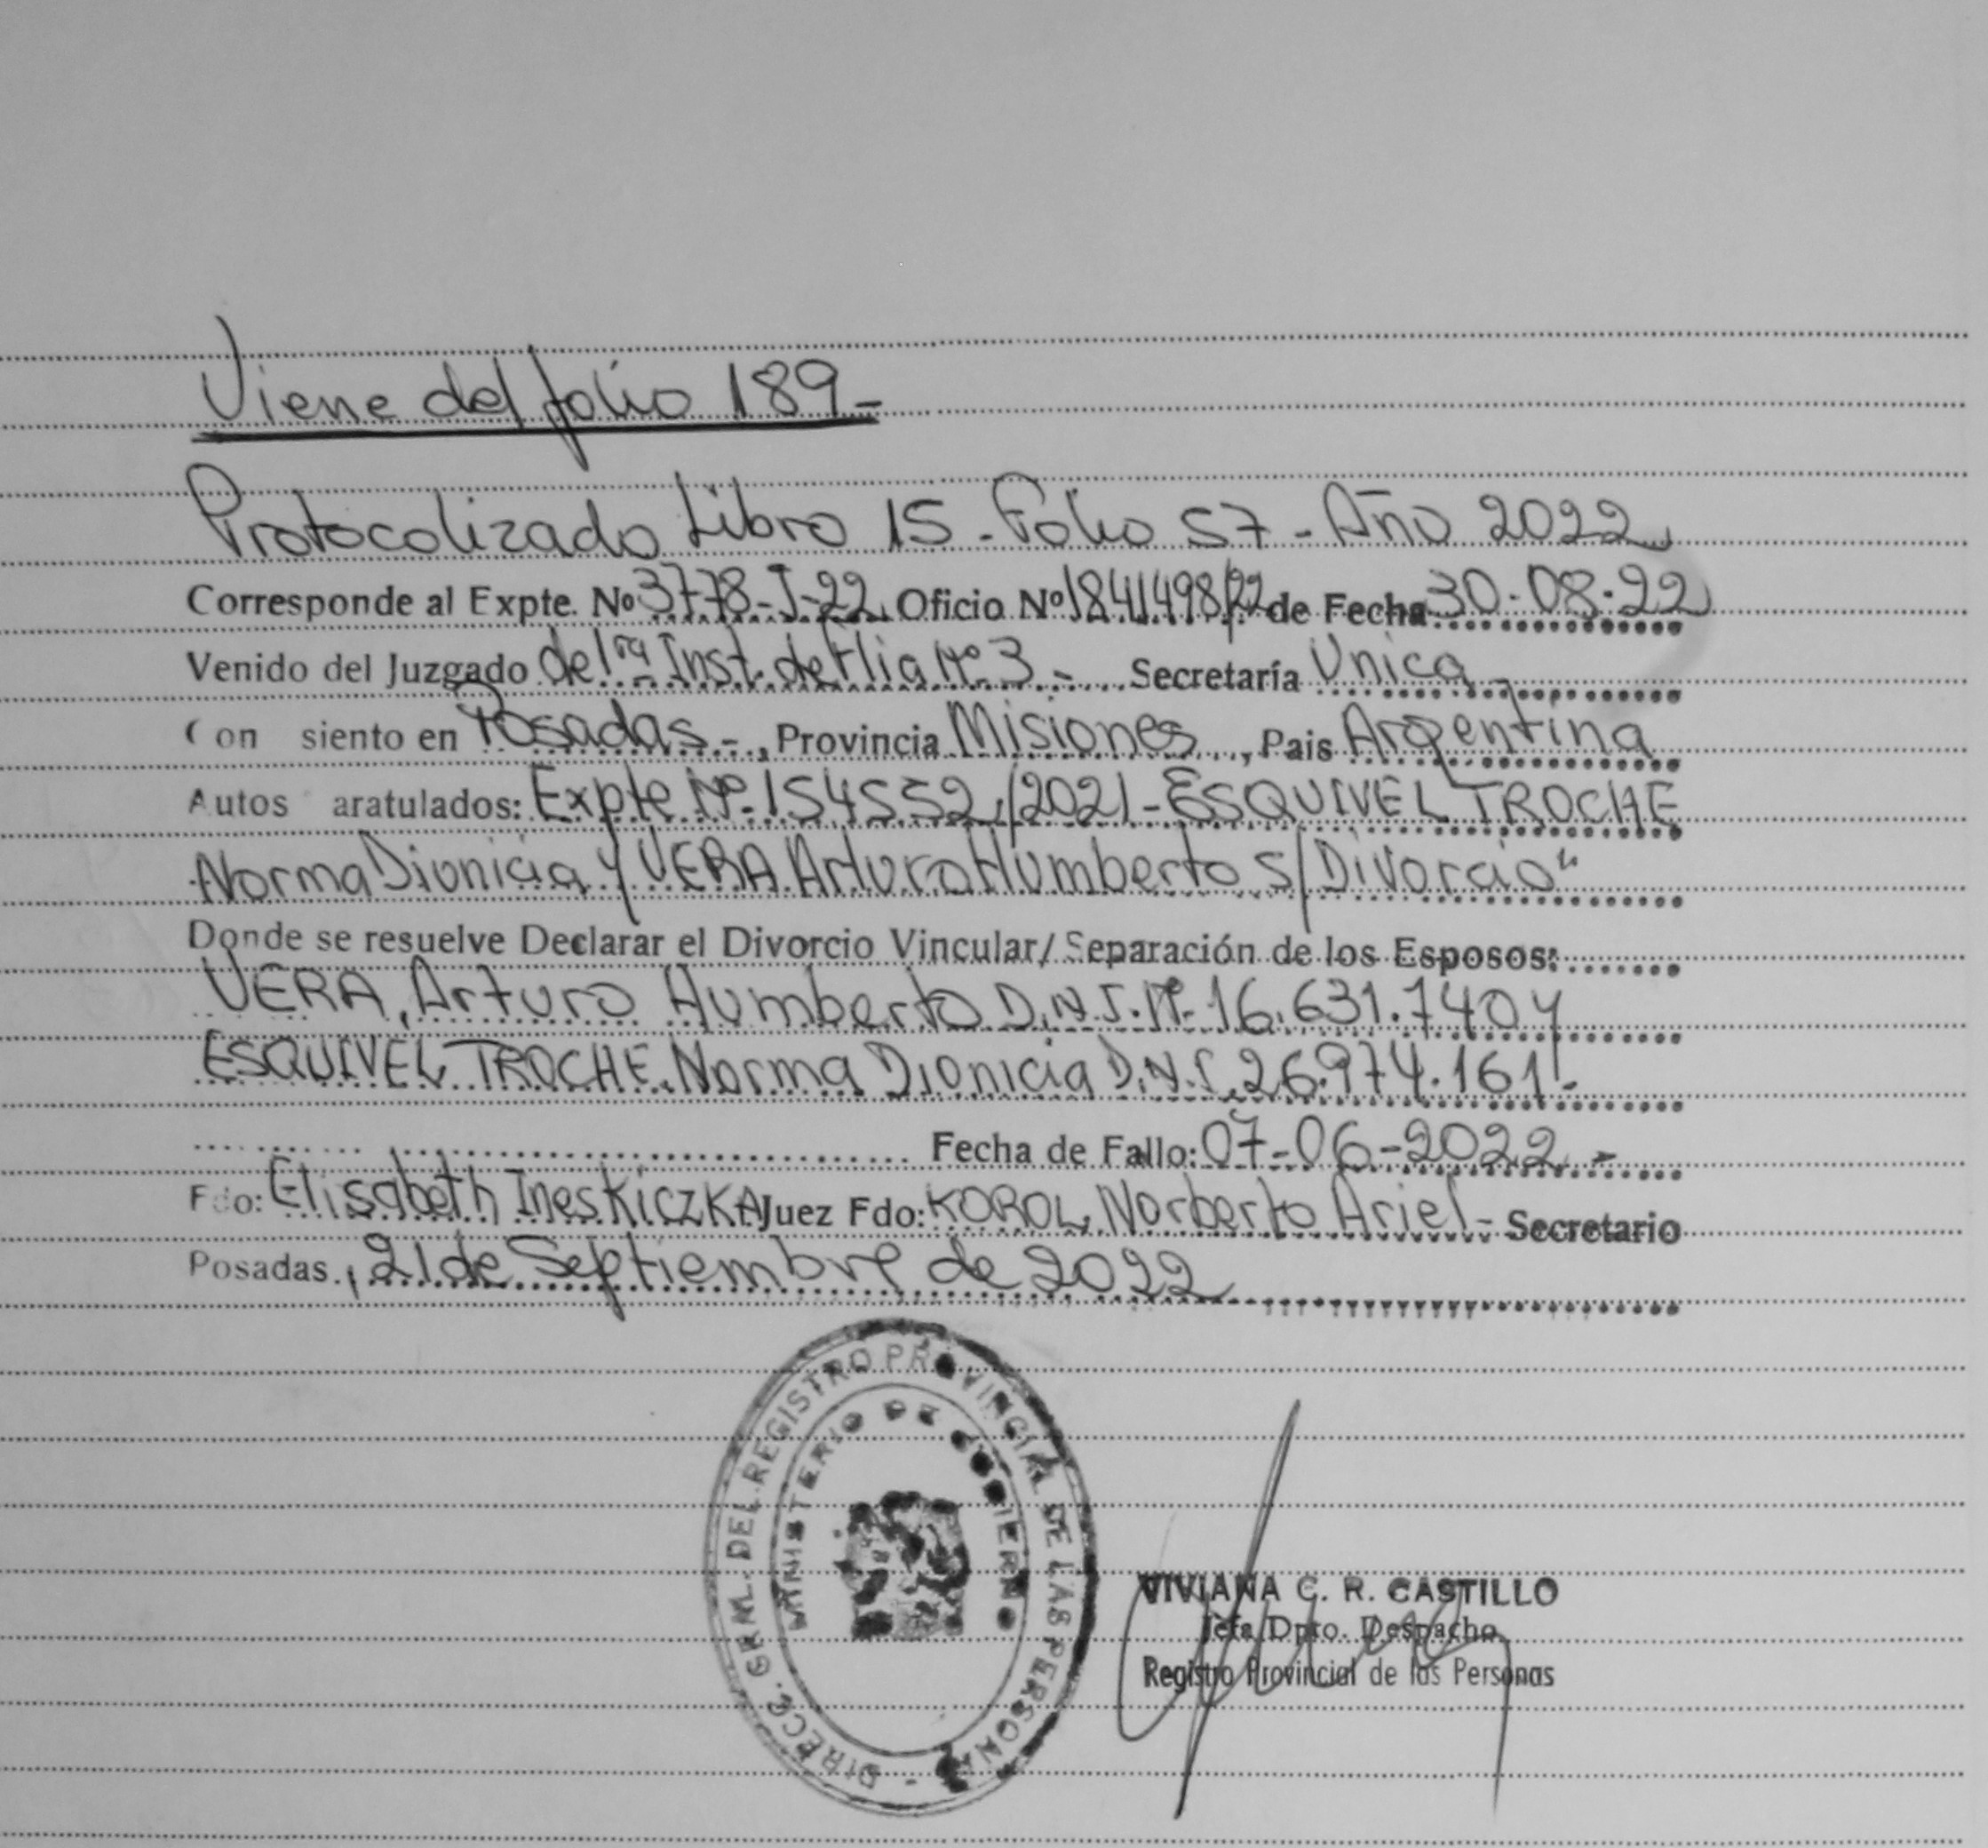 Viene del folio 189-
Protocolizado Libro 15 - Folio 57 - Año 2022
Corresponde al Expte. Nº 3778-J-22 Oficio Nº 1841498/22 de Fecha 30-08-22
Venido del Juzgado de 1ra Inst. de Flia Nº 3 - Secretaría Unica -
Con siento en Posadas -, Provincia Misiones, Pais Argentina
Autos aratulados: Expte Nº 154552/2021 - ESQUIVEL TROCHE
Norma Dionicia y VERA Arturo Humberto S/Divorcio"
Donde se resuelve Declarar el Divorcio Vincular/Separación de los Esposos:
VERA, Arturo Humberto D.N.I. Nº 16.631.740 y
ESQUIVEL TROCHE, Norma Dionicia D.N.I. 26.974.161.-
Fecha de Fallo: 07-06-2022 -
Fdo: Elisabeth Ines KiczKA Juez Fdo: KOROL, Norberto Ariel - Secretario
Posadas, 21 de Septiembre de 2022
DIRECC. GRAL. DEL REGISTRO PROVINCIAL DE LAS PERSONAS -
MINISTERIO DE GOBIERNO
VIVIANA C. R. CASTILLO
Jefa Dpto. Despacho
Registro Provincial de las Personas